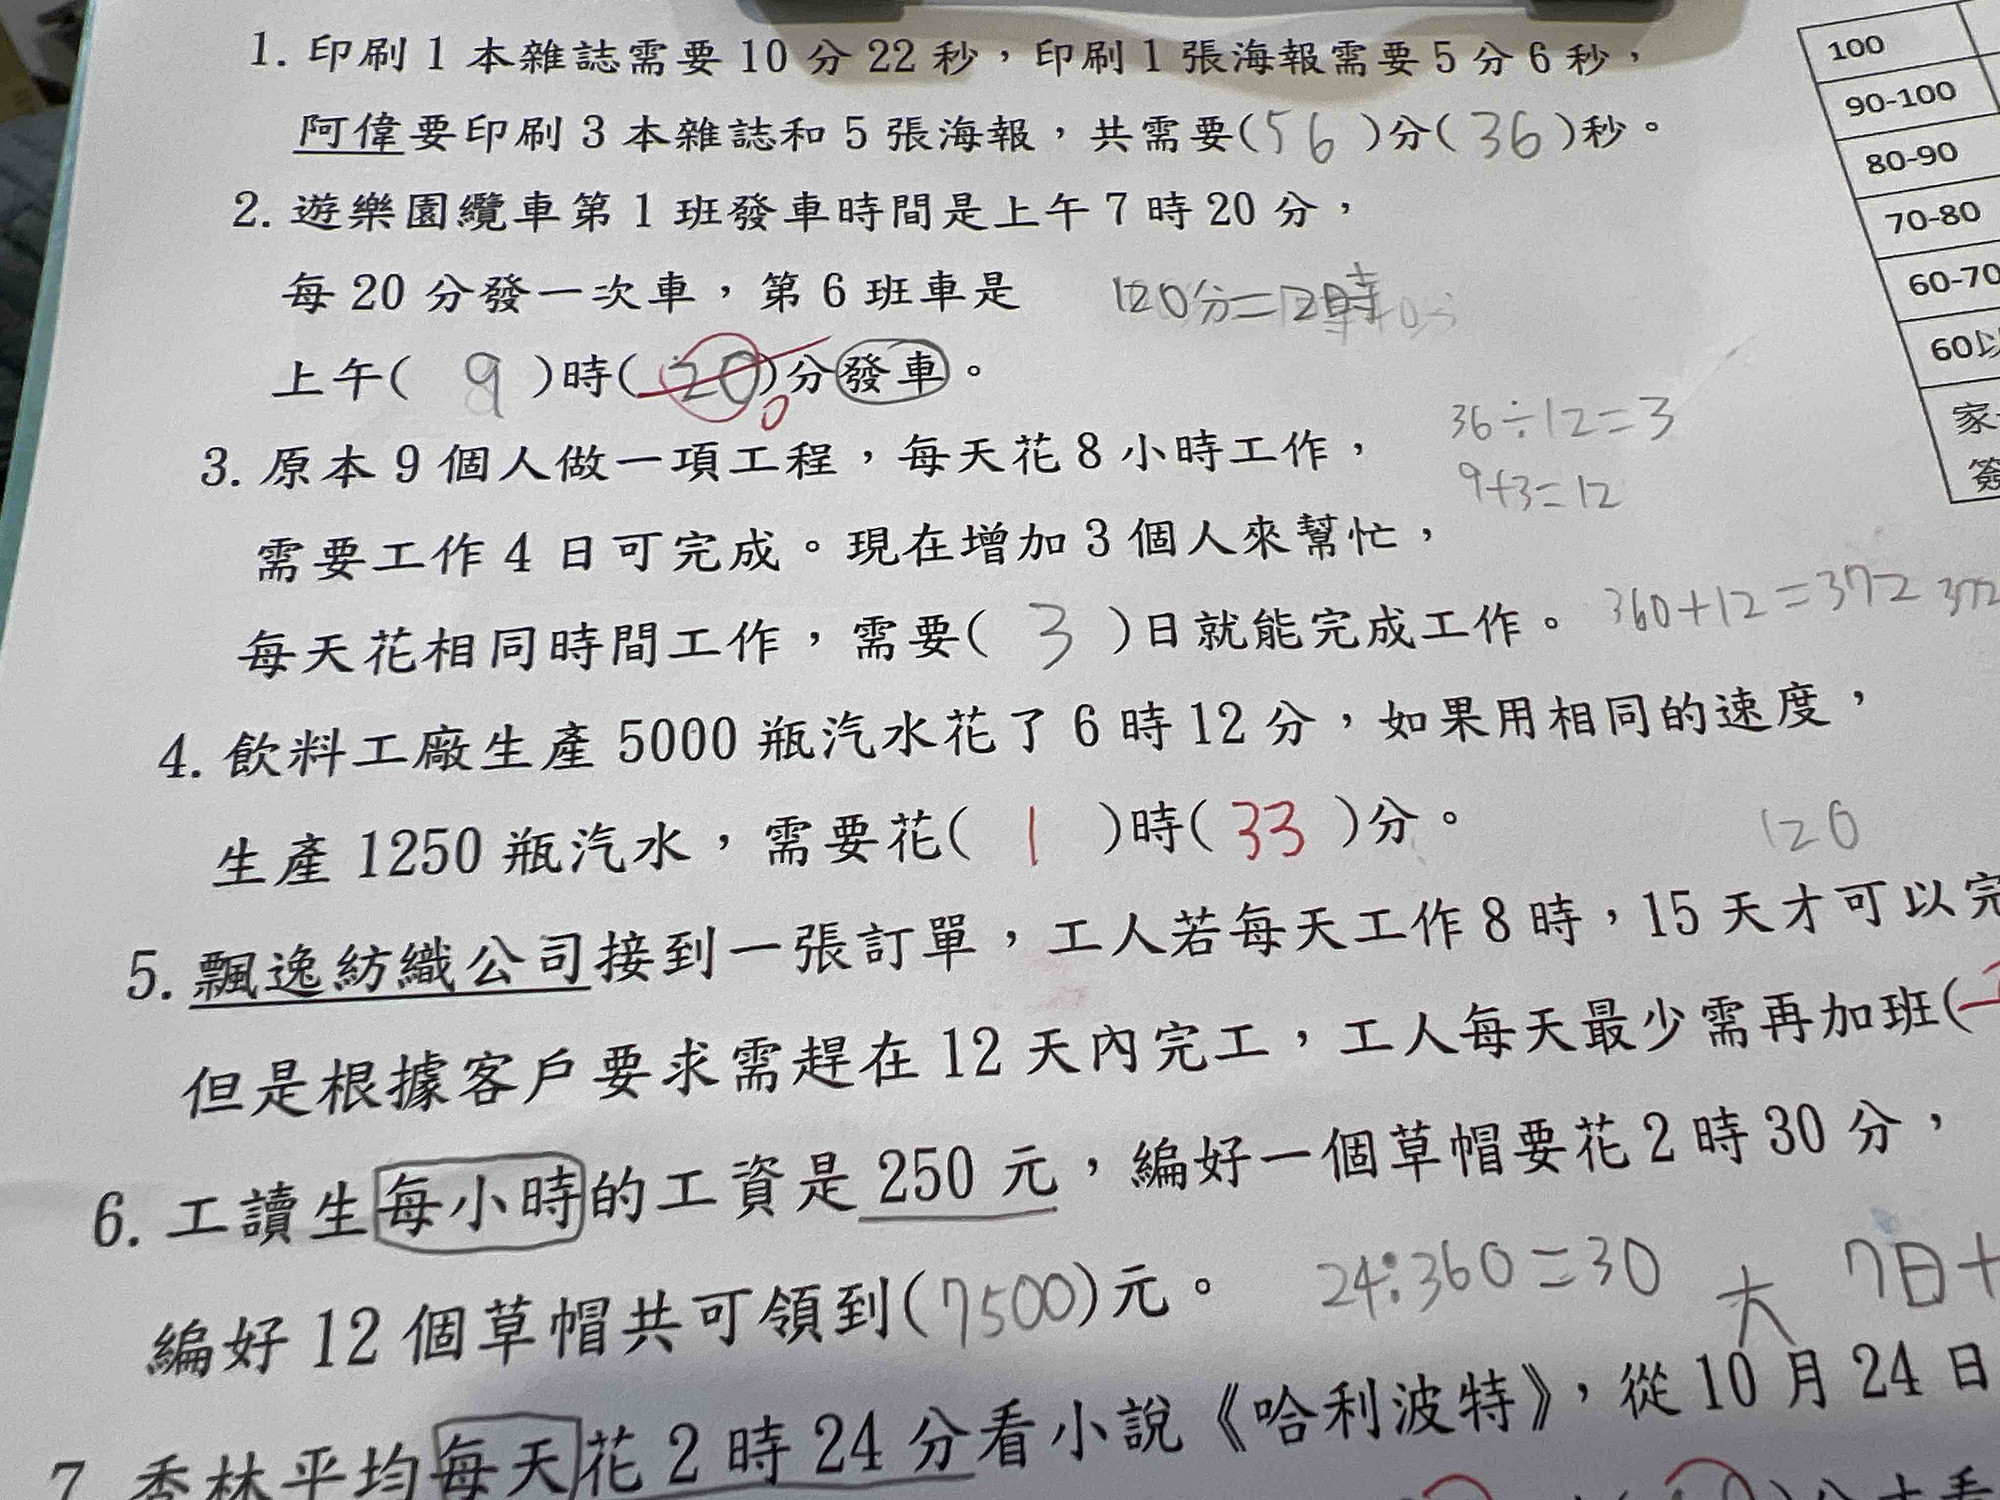 1. 印刷 1 本雜誌需要 10 分 22 秒，印刷 1 張海報需要 5 分 6 秒，
阿偉要印刷 3 本雜誌和 5 張海報，共需要(56)分(36)秒。
2. 遊樂園纜車第 1 班發車時間是上午 7 時 20 分，
每 20 分發一次車，第 6 班車是
120分=2時
上午( 9 )時( 20 )分發車。
0
36÷12=3
9+3=12
3. 原本 9 個人做一項工程，每天花 8 小時工作，
需要工作 4 日可完成。現在增加 3 個人來幫忙，
每天花相同時間工作，需要( 3 )日就能完成工作。
360+12=372 372
4. 飲料工廠生產 5000 瓶汽水花了 6 時 12 分，如果用相同的速度，
生產 1250 瓶汽水，需要花( 1 )時( 33 )分。
120
5. 飄逸紡織公司接到一張訂單，工人若每天工作 8 時，15 天才可以完
但是根據客戶要求需趕在 12 天內完工，工人每天最少需再加班(
6. 工讀生每小時的工資是 250 元，編好一個草帽要花 2 時 30 分，
編好 12 個草帽共可領到(7500)元。
24:360=30
大 7日+
7. 秀林平均每天花 2 時 24 分看小說《哈利波特》，從 10 月 24 日
100
90-100
80-90
70-80
60-70
60以
家
簽